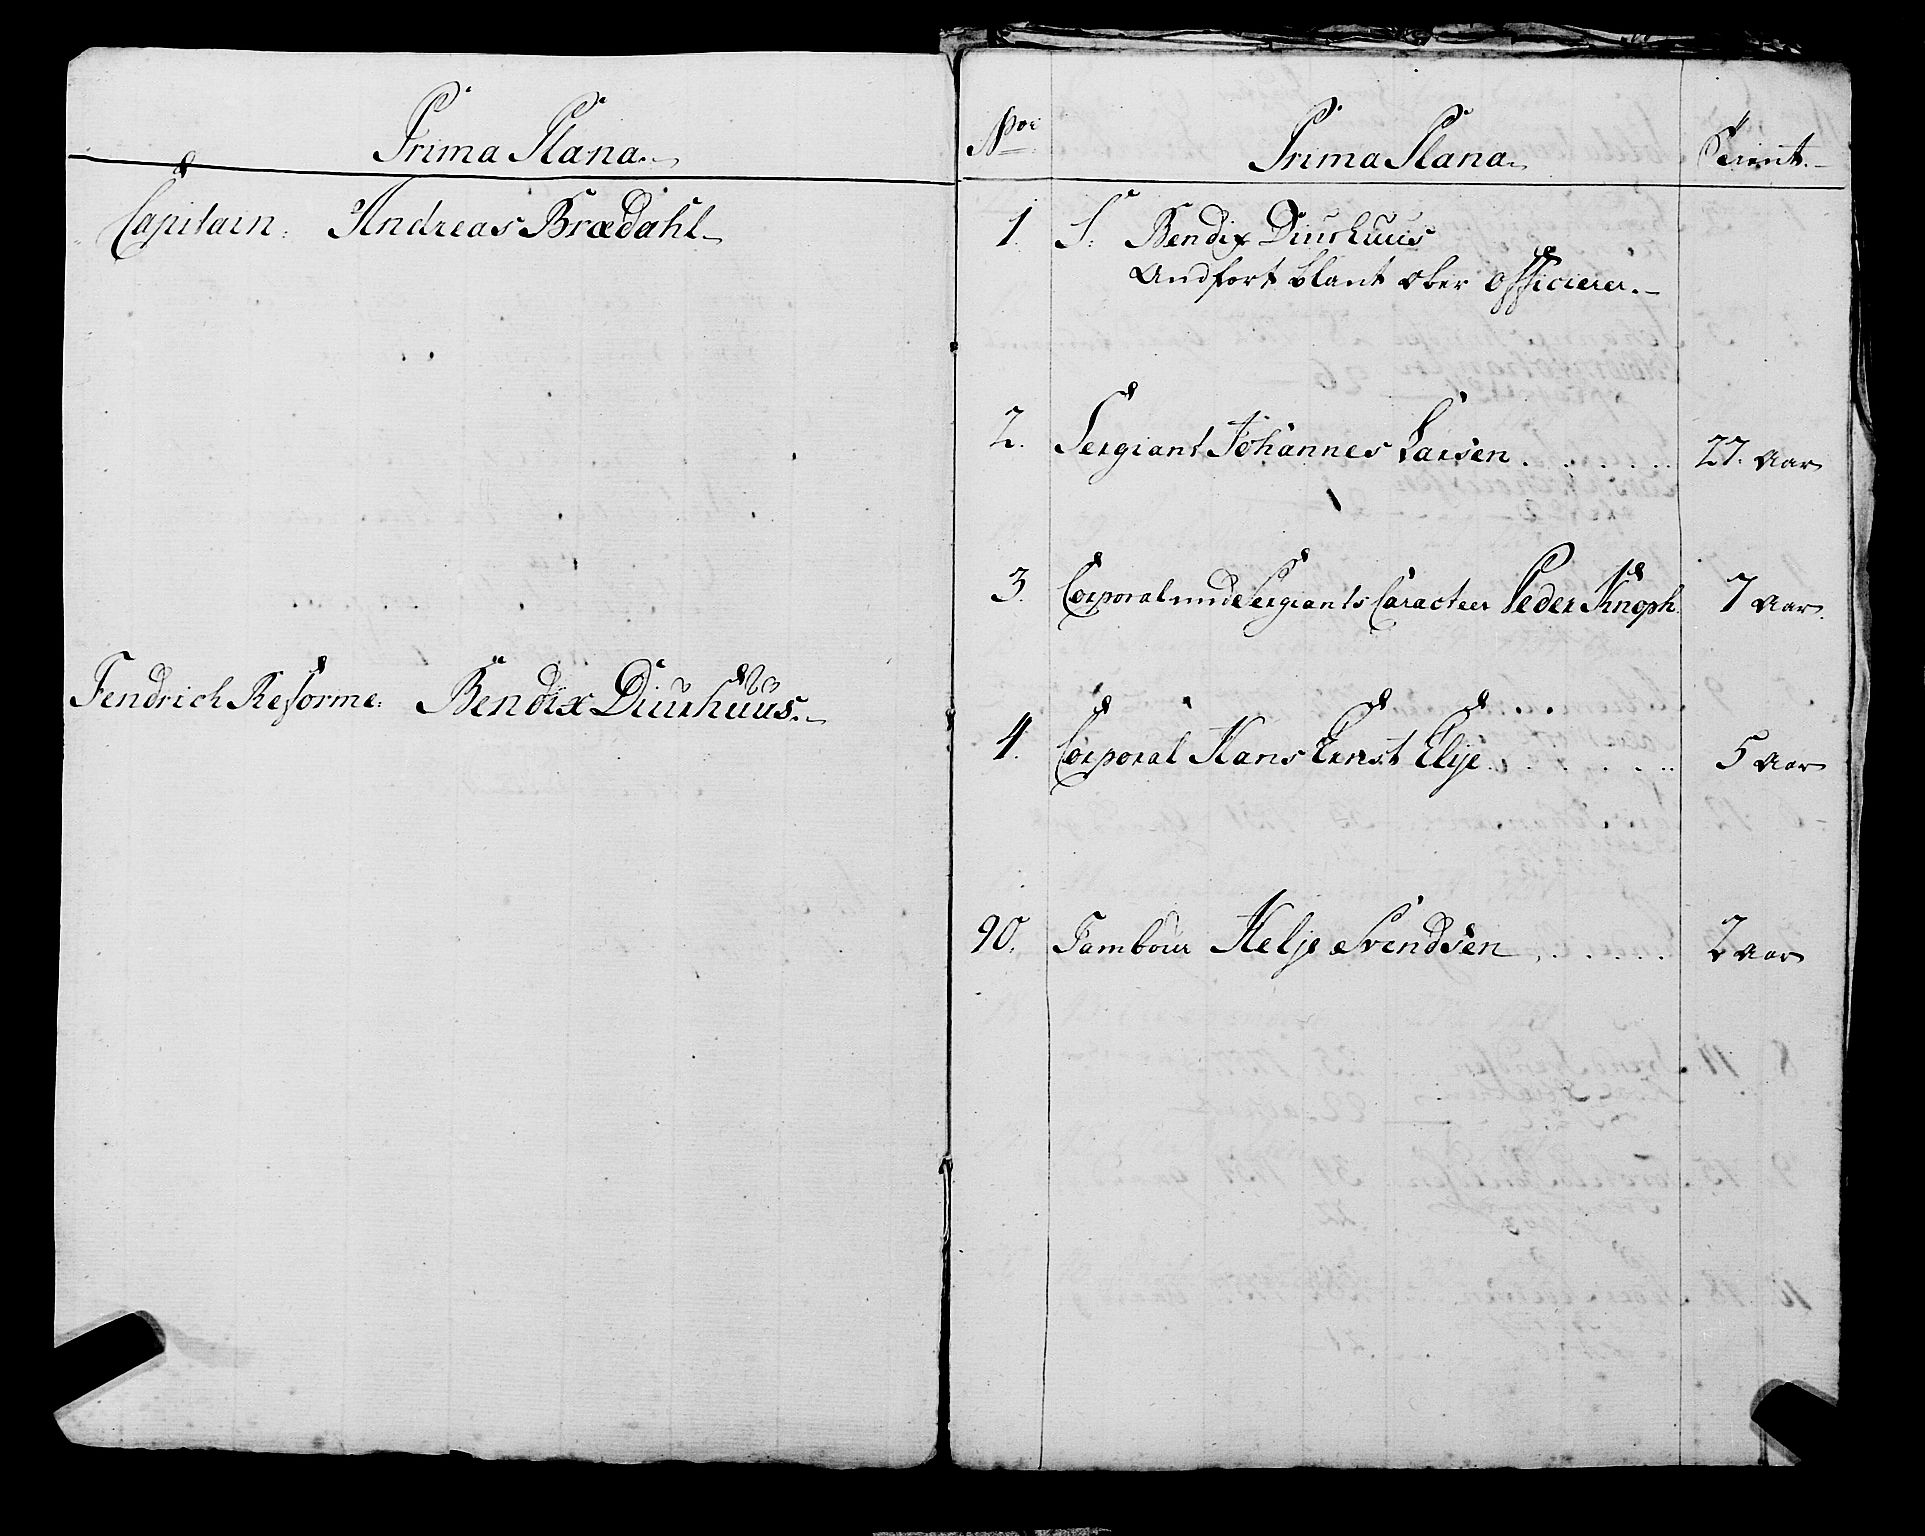 Prima Plana.
Capitain: Andreas Brædahl
Fendrich Reforme: Bendix Diurhuus.
No: Prima Plana Tient.
1. S: Bendix Diurhuus
Andfört blant Ober Officierer.
2. Sergiant Johannes Larsen . . . . . . 27. Aar
3. Corporal med Sergiants Caracteer Peder Knoph. 7 Aar.
4. Corporal Hans Ernst Elije . . . . . 5 Aar
90. Tambour Helje Svendsen . . . . . . 2 Aar